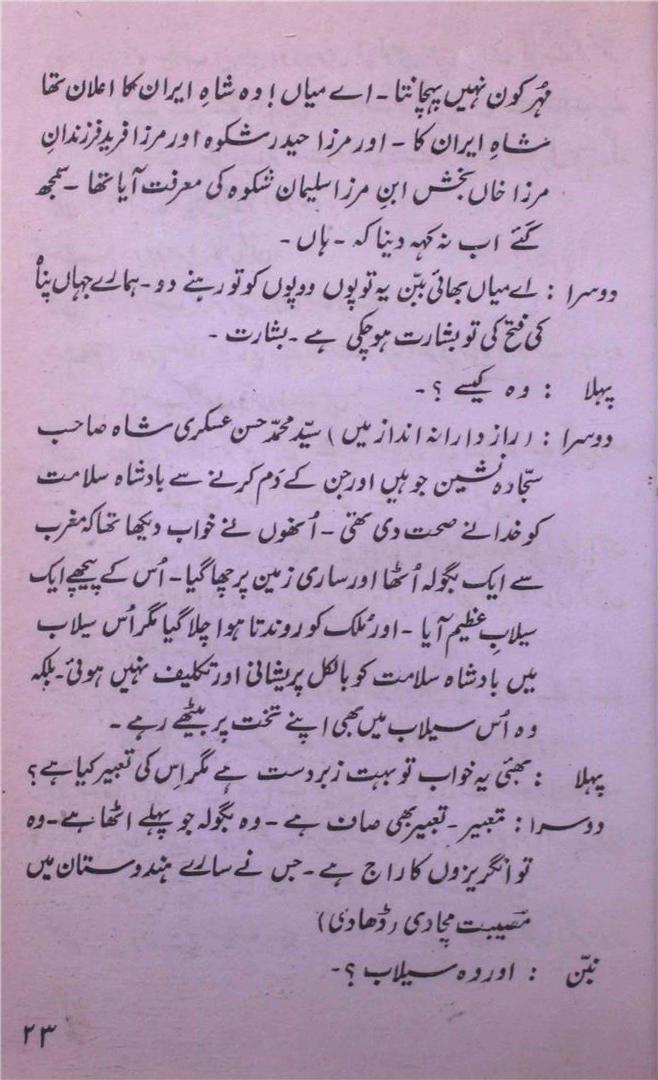 مُہر کون نہیں پہچانتا ۔ اے میاں ! وہ شاہِ ایران کا اعلان تھا
شاہِ ایران کا ۔ اور مرزا حیدر شکوہ اور مرزا فرید فرزندانِ
مرزا خاں بخش ابنِ مرزا سلیمان شکوہ کی معرفت آیا تھا ۔ سمجھ
گئے اب نہ کہہ دینا کہ ۔ ہاں ۔
دوسرا : اے میاں بھائی ببّن یہ توپوں ووپوں کو تو رہنے دو ۔ ہمارے جہاں پناہ
کی فتح کی تو بشارت ہوچکی ہے ۔ بشارت ۔
پہلا : وہ کیسے ؟ ۔
دوسرا : ( رازدارانہ انداز میں ) سیّد محمّد حسن عسکری شاہ صاحب
سجّادہ نشین جو ہیں اور جن کے دَم کرنے سے بادشاہ سلامت
کو خدا نے صحت دی تھی ۔ اُنھوں نے خواب دیکھا تھا کہ مغرب
سے ایک بگولہ اُٹھا اور ساری زمین پر چھا گیا ۔ اُس کے پیچھے ایک
سیلابِ عظیم آیا ۔ اور مُلک کو روندتا ہوا چلا گیا مگر اُس سیلاب
میں بادشاہ سلامت کو بالکل پریشانی اور تکلیف نہیں ہوئی ۔ بلکہ
وہ اُس سیلاب میں بھی اپنے تخت پر بیٹھے رہے ۔
پہلا : بھئی یہ خواب تو بہت زبردست ہے مگر اِس کی تعبیر کیا ہے ؟
دوسرا : تعبیر ۔ تعبیر بھی صاف ہے ۔ وہ بگولہ جو پہلے اٹھا ہے ۔ وہ
تو انگریزوں کا راج ہے ۔ جس نے سارے ہندوستان میں
مصیبت مچادی ( ڈھادی )
ببّن : اور وہ سیلاب ؟ ۔
۲۳